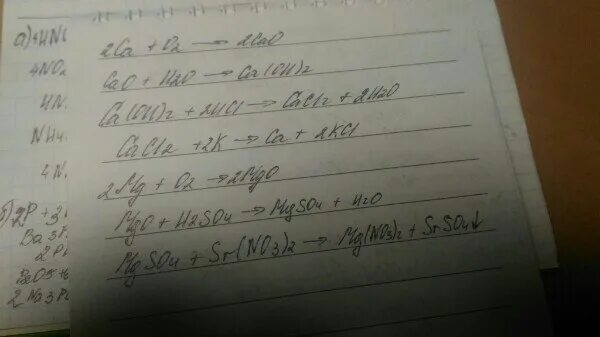 а) 4HN
4NO2
4N.
NH4.
4N.
б) 2P + 3
Ba3P
2P
2Na3P
2Ca + O2 → 2CaO
CaO + H2O → Ca(OH)2
Ca(OH)2 + 2HCl → CaCl2 + 2H2O
CaCl2 + 2K → Ca + 2KCl
2Mg + O2 → 2MgO
MgO + H2SO4 → MgSO4 + H2O
MgSO4 + Sr(NO3)2 → Mg(NO3)2 + SrSO4↓